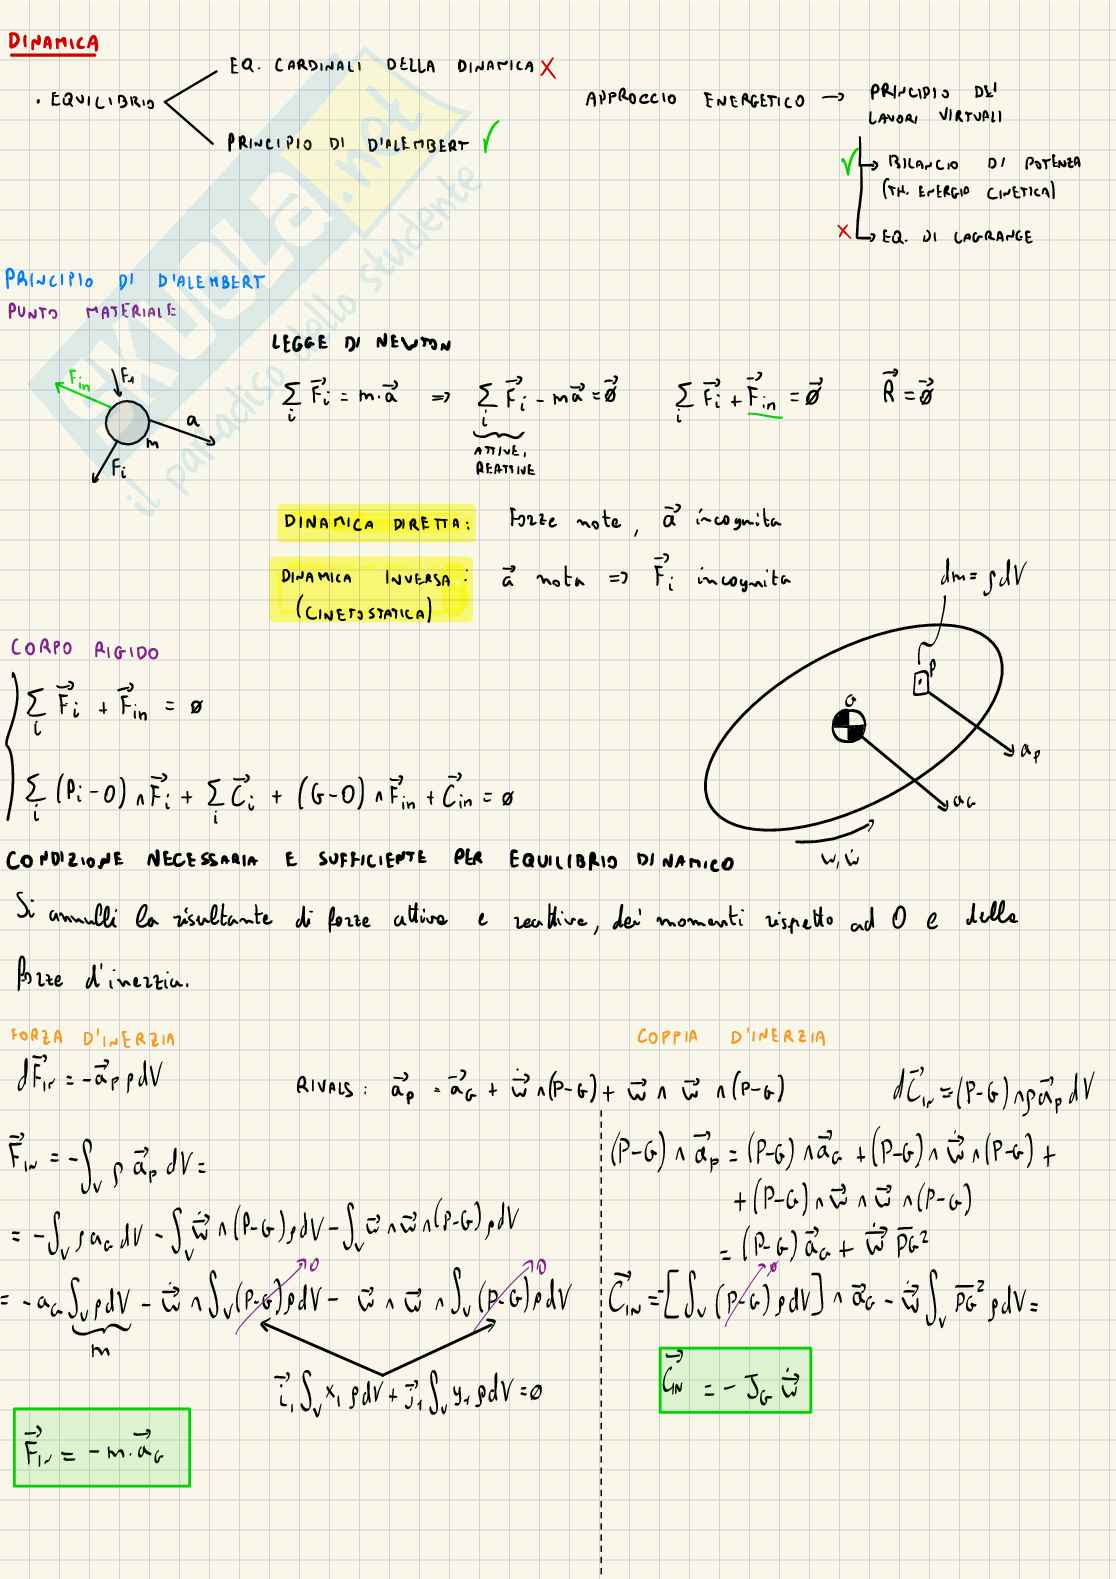 DINAMICA
EQ. CARDINALI DELLA DINAMICA X
. EQUILIBRIO
PRINCIPIO DI D'ALEMBERT ✓
APPROCCIO ENERGETICO → PRINCIPIO DE' LAVORI VIRTUALI
✓ → BILANCIO DI POTENZA
(TH. ENERGIA CINETICA)
X → EQ. DI LAGRANGE
SKUOLA.net
il paradiso dello studente
PRINCIPIO DI D'ALEMBERT
PUNTO MATERIALE
LEGGE DI NEWTON
F_in F_1 a m F_i
∑_i F⃗_i = m·a⃗ ⇒ ∑_i F⃗_i - ma⃗ = 0⃗ ∑_i F⃗_i + F⃗_in = 0⃗ R⃗ = 0⃗
ATTIVE,
REATTIVE
DINAMICA DIRETTA: Forze note, a⃗ incognita
DINAMICA INVERSA: a⃗ nota ⇒ F⃗_i incognita
(CINETOSTATICA)
dm = ρdV
P
G
a_P
a_G
ω, ω̇
CORPO RIGIDO
∑_i F⃗_i + F⃗_in = 0
∑_i (P_i-O) ∧ F⃗_i + ∑_i C⃗_i + (G-O) ∧ F⃗_in + C⃗_in = 0
CONDIZIONE NECESSARIA E SUFFICIENTE PER EQUILIBRIO DINAMICO
Si annulli la risultante di forze attive e reattive, dei momenti rispetto ad O e delle
forze d'inerzia.
FORZA D'INERZIA
dF⃗_IN = -a⃗_P ρdV
RIVALS: a⃗_P = a⃗_G + ω̇⃗ ∧ (P-G) + ω⃗ ∧ ω⃗ ∧ (P-G)
F⃗_IN = -∫_V ρ a⃗_P dV =
= -∫_V ρ a_G dV - ∫_V ω̇⃗ ∧ (P-G) ρdV - ∫_V ω⃗ ∧ ω⃗ ∧ (P-G) ρdV
= -a_G ∫_V ρdV - ω̇⃗ ∧ ∫_V (P-G) ρdV - ω⃗ ∧ ω⃗ ∧ ∫_V (P-G) ρdV
m 0 0
i⃗_1 ∫_V x_1 ρdV + j⃗_1 ∫_V y_1 ρdV = 0
F⃗_IN = -m·a⃗_G
COPPIA D'INERZIA
dC⃗_IN = (P-G) ∧ ρa⃗_P dV
(P-G) ∧ a⃗_P = (P-G) ∧ a⃗_G + (P-G) ∧ ω̇⃗ ∧ (P-G) +
+ (P-G) ∧ ω⃗ ∧ ω⃗ ∧ (P-G)
= (P-G) a⃗_G + ω̇⃗ P̅G̅²
C⃗_IN = -[∫_V (P-G) ρdV] ∧ a⃗_G - ω̇⃗ ∫_V P̅G̅² ρdV =
0
C⃗_IN = - J_G ω̇⃗